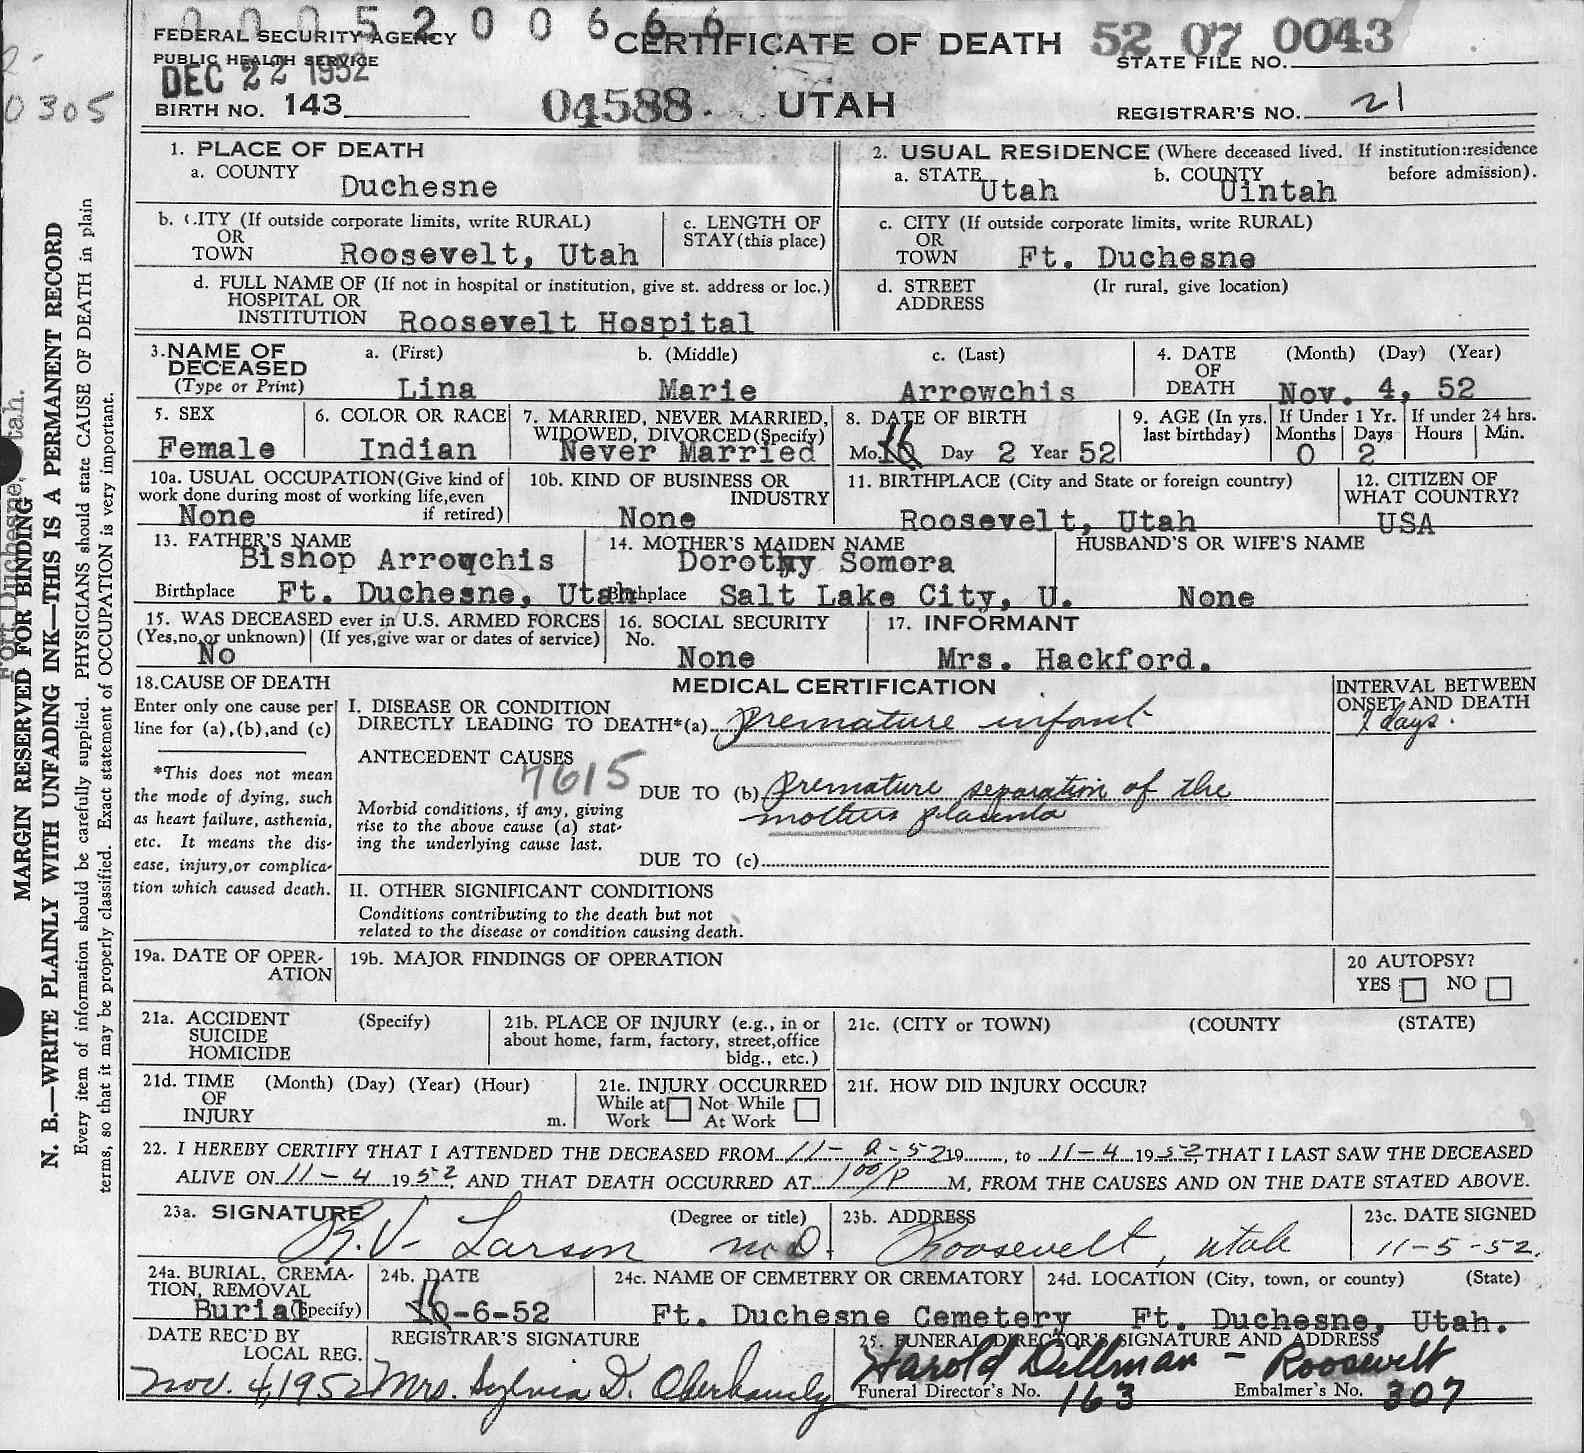 00052 00666
FEDERAL SECURITY AGENCY
PUBLIC HEALTH SERVICE
DEC 22 1952
CERTIFICATE OF DEATH
52 07 0043
STATE FILE NO.
BIRTH NO. 143
04588
UTAH
REGISTRAR'S NO. 21
0305
1. PLACE OF DEATH
a. COUNTY Duchesne
2. USUAL RESIDENCE (Where deceased lived. If institution:residence before admission).
a. STATE Utah b. COUNTY Uintah
b. CITY (If outside corporate limits, write RURAL)
OR
TOWN Roosevelt, Utah
c. LENGTH OF
STAY (this place)
c. CITY (If outside corporate limits, write RURAL)
OR
TOWN Ft. Duchesne
d. FULL NAME OF (If not in hospital or institution, give st. address or loc.)
HOSPITAL OR
INSTITUTION Roosevelt Hospital
d. STREET (If rural, give location)
ADDRESS
3. NAME OF DECEASED (Type or Print)
a. (First) b. (Middle) c. (Last)
Lina Marie Arrowchis
4. DATE OF DEATH (Month) (Day) (Year)
Nov. 4, 52
5. SEX
Female
6. COLOR OR RACE
Indian
7. MARRIED, NEVER MARRIED,
WIDOWED, DIVORCED (Specify)
Never Married
8. DATE OF BIRTH
Mo. 11 Day 2 Year 52
9. AGE (In yrs. last birthday)
If Under 1 Yr. If under 24 hrs.
Months Days Hours Min.
0 2
10a. USUAL OCCUPATION (Give kind of
work done during most of working life, even
if retired)
None
10b. KIND OF BUSINESS OR
INDUSTRY
None
11. BIRTHPLACE (City and State or foreign country)
Roosevelt, Utah
12. CITIZEN OF
WHAT COUNTRY?
USA
13. FATHER'S NAME
Bishop Arrowchis
Birthplace Ft. Duchesne, Utah
14. MOTHER'S MAIDEN NAME
Dorothy Somora
Birthplace Salt Lake City, U.
HUSBAND'S OR WIFE'S NAME
None
15. WAS DECEASED ever in U.S. ARMED FORCES
(Yes, no, or unknown) (If yes, give war or dates of service)
No
16. SOCIAL SECURITY
No.
None
17. INFORMANT
Mrs. Hackford.
18. CAUSE OF DEATH
Enter only one cause per
line for (a), (b), and (c)
*This does not mean
the mode of dying, such
as heart failure, asthenia,
etc. It means the dis-
ease, injury, or complica-
tion which caused death.
MEDICAL CERTIFICATION
INTERVAL BETWEEN
ONSET AND DEATH
I. DISEASE OR CONDITION
DIRECTLY LEADING TO DEATH*(a) premature infant
2 days.
ANTECEDENT CAUSES
7615
Morbid conditions, if any, giving
rise to the above cause (a) stat-
ing the underlying cause last.
DUE TO (b) premature separation of the
mothers placenta
DUE TO (c)
II. OTHER SIGNIFICANT CONDITIONS
Conditions contributing to the death but not
related to the disease or condition causing death.
19a. DATE OF OPER-
ATION
19b. MAJOR FINDINGS OF OPERATION
20 AUTOPSY?
YES NO
21a. ACCIDENT (Specify)
SUICIDE
HOMICIDE
21b. PLACE OF INJURY (e.g., in or
about home, farm, factory, street, office
bldg., etc.)
21c. (CITY or TOWN) (COUNTY (STATE)
21d. TIME (Month) (Day) (Year) (Hour)
OF
INJURY m.
21e. INJURY OCCURRED
While at Work Not While At Work
21f. HOW DID INJURY OCCUR?
22. I HEREBY CERTIFY THAT I ATTENDED THE DECEASED FROM 11-2-52 19, to 11-4 1952, THAT I LAST SAW THE DECEASED
ALIVE ON 11-4 1952, AND THAT DEATH OCCURRED AT 1 00/P M, FROM THE CAUSES AND ON THE DATE STATED ABOVE.
23a. SIGNATURE (Degree or title)
R.V. Larson M.D.
23b. ADDRESS
Roosevelt, Utah
23c. DATE SIGNED
11-5-52.
24a. BURIAL, CREMA-
TION, REMOVAL
(Specify) Burial
24b. DATE
11-6-52
24c. NAME OF CEMETERY OR CREMATORY
Ft. Duchesne Cemetery
24d. LOCATION (City, town, or county) (State)
Ft. Duchesne, Utah.
DATE REC'D BY
LOCAL REG.
Nov. 4, 1952
REGISTRAR'S SIGNATURE
Mrs. Sylvia D. Oberhansly
25. FUNERAL DIRECTOR'S SIGNATURE AND ADDRESS
Harold Dillman - Roosevelt
Funeral Director's No. 163 Embalmer's No. 307
Fort Duchesne, Utah.
MARGIN RESERVED FOR BINDING
N. B.—WRITE PLAINLY WITH UNFADING INK—THIS IS A PERMANENT RECORD
Every item of information should be carefully supplied. PHYSICIANS should state CAUSE OF DEATH in plain
terms, so that it may be properly classified. Exact statement of OCCUPATION is very important.